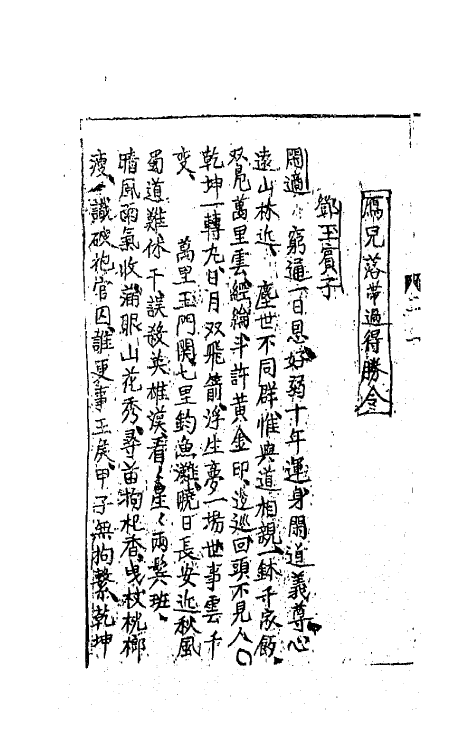 鴈兒落帶過得勝令
鄧玉賓子
閑適 窮通一日恩好弱十年運身閑道義尊心
遠山林近 塵世不同群惟與道相親一鉢千家飯
双凫萬里雲經綸半許黃金印逡巡回頭不見人〇
乾坤一轉九日月双飛箭浮生夢一場世事雲千
变 萬里玉門関七里釣魚灘曉日長安近秋風
蜀道難休干誤殺英雄漢看看星星兩鬢斑
晴風雨氣收滿眼山花秀尋苗枸杞香曳杖桄榔
瘦識破袍官囚誰更事王矦甲子無拘繫乾坤